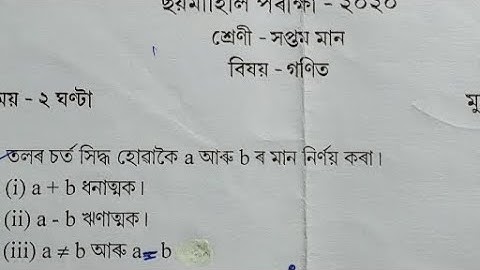 ছয়মাহিলি পৰীক্ষা - ২০২০
শ্ৰেণী - সপ্তম মান
বিষয় - গণিত
ময় - ২ ঘণ্টা
মু
তলৰ চৰ্ত সিদ্ধ হোৱাকৈ a আৰু b ৰ মান নিৰ্ণয় কৰা।
(i) a + b ধনাত্মক।
(ii) a - b ঋণাত্মক।
(iii) a ≠ b আৰু a = b